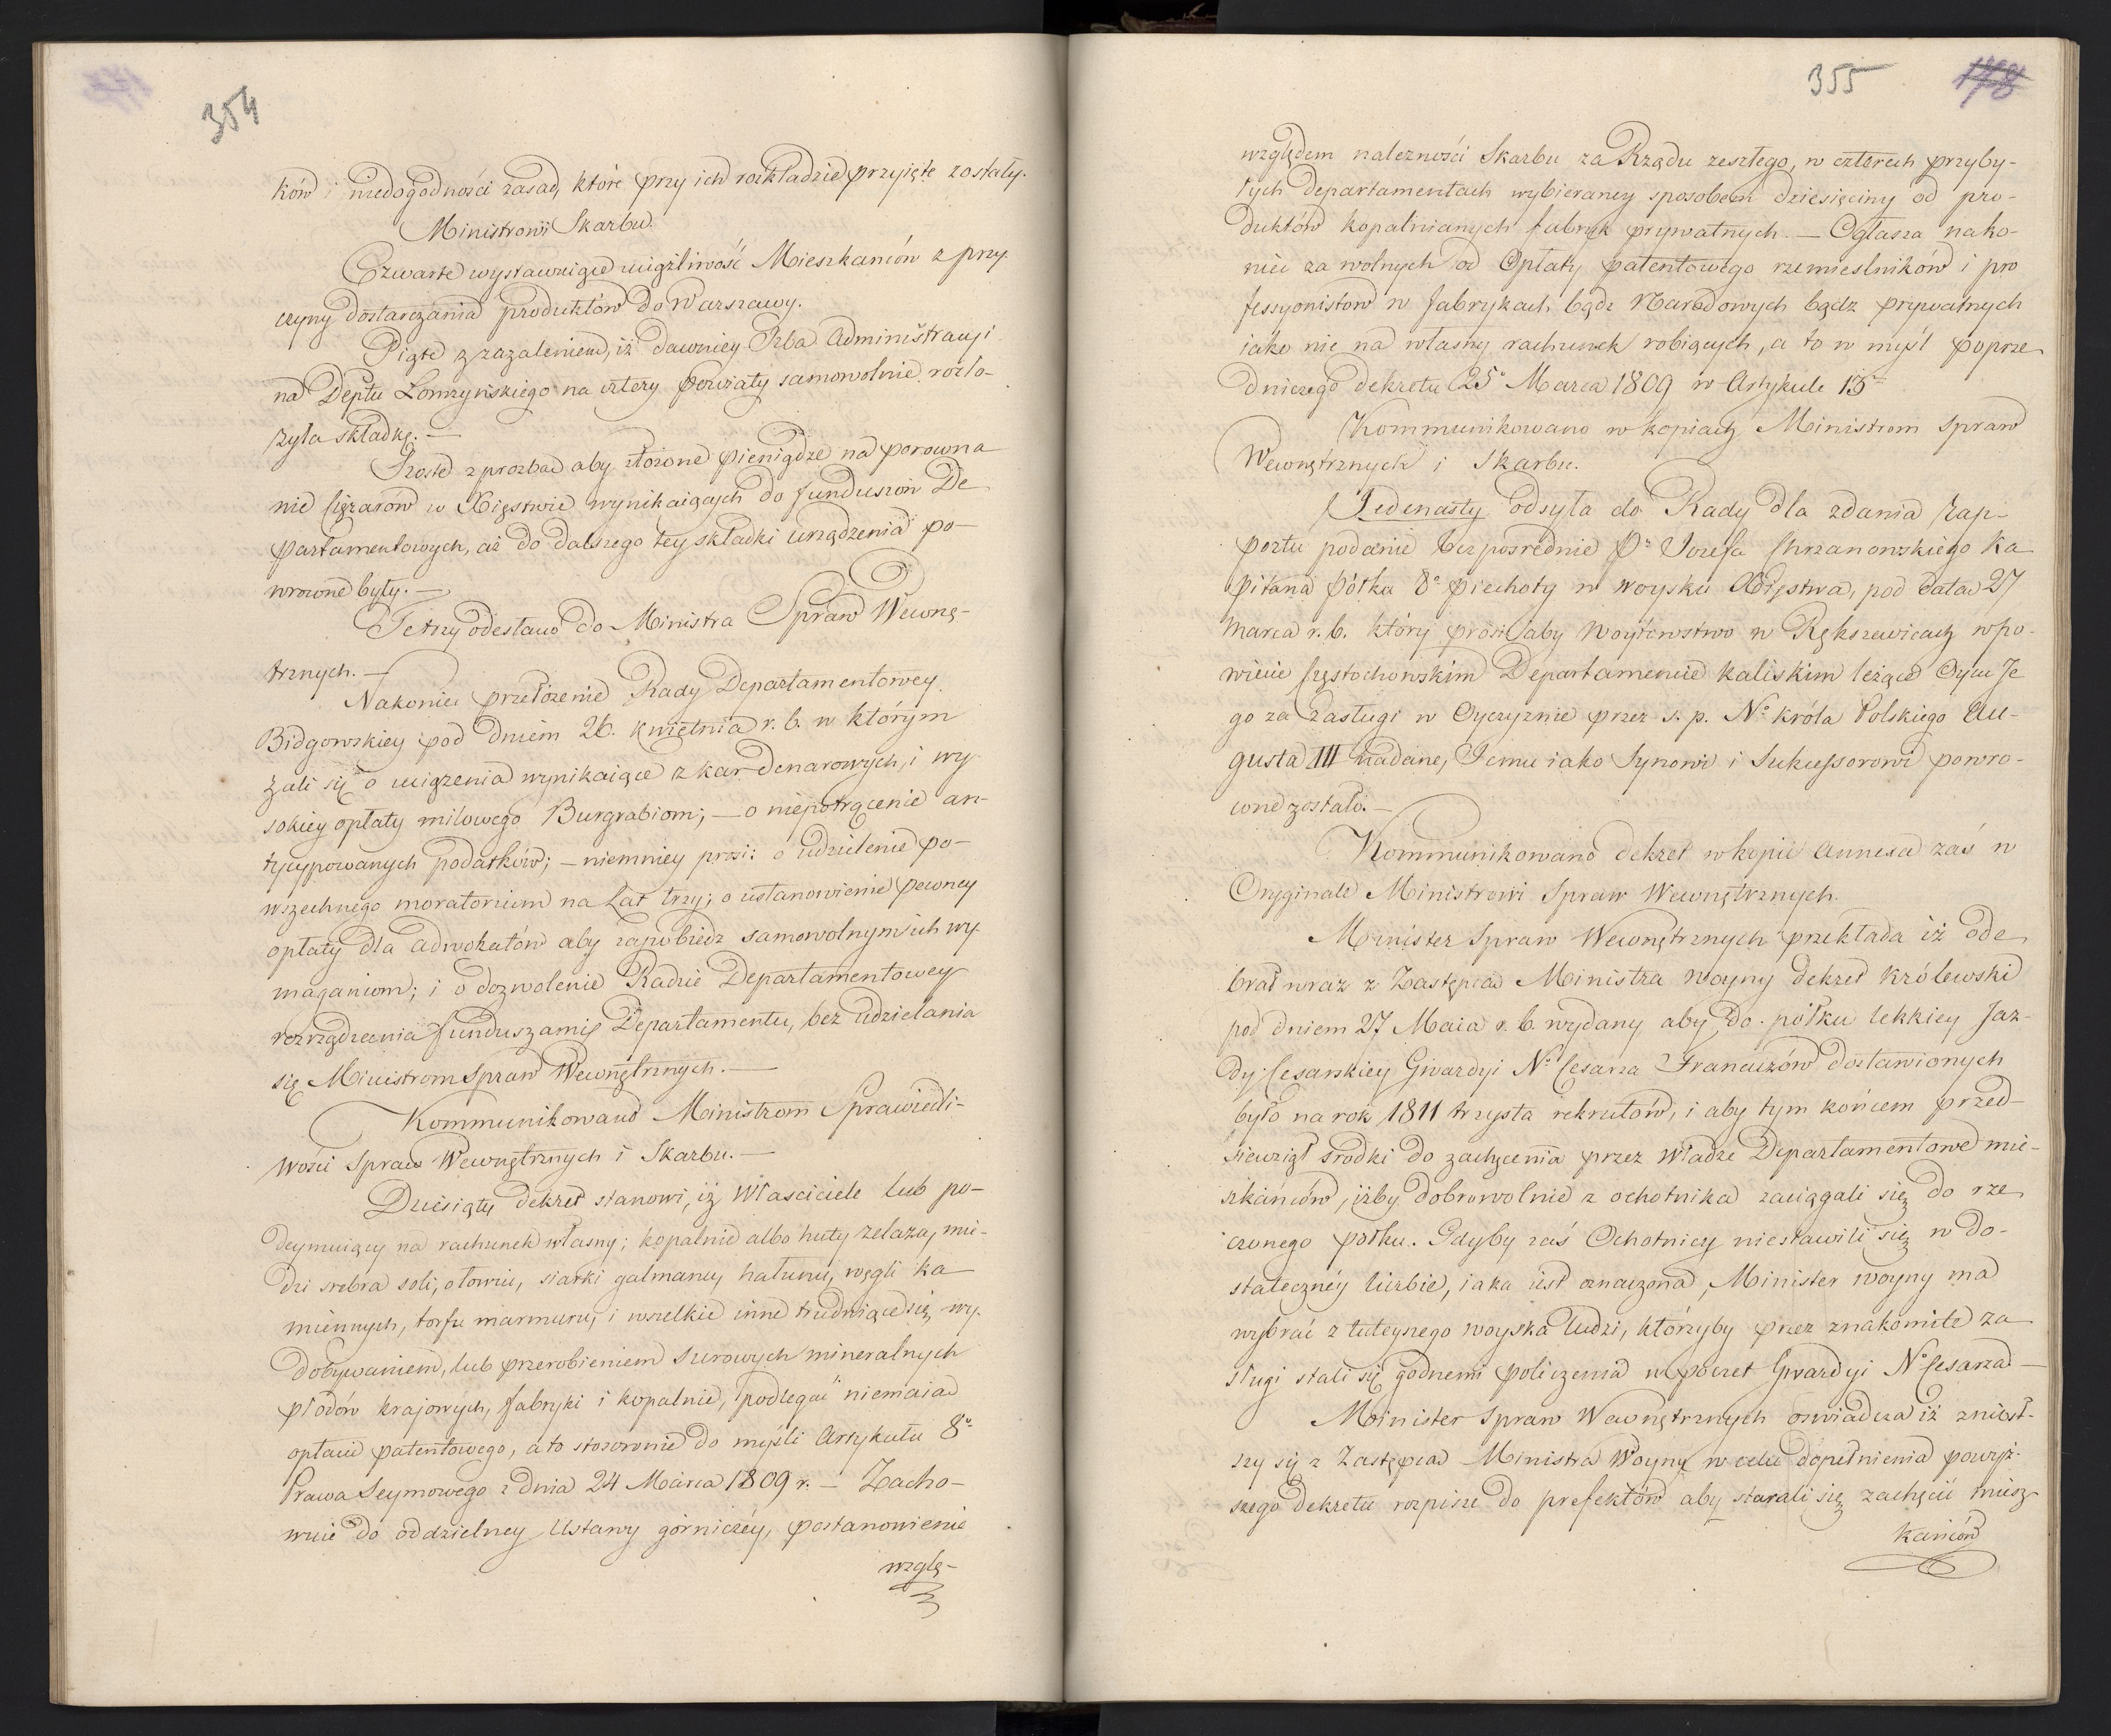 354
ków i niedogodności zasad, które przy ich rozkładzie przyięte zostały.
Ministrowi Skarbu.
Czwarte wystawuiące uciążliwość Mieszkańców z przy-
czyny dostarczania produktów do Warszawy.
Piąte z zazaleniem, iż dawniey Izba Administracyi
na Deptu Łomżyńskiego na cztery powiaty samowolnie rozło-
żyła składkę. —
Szoste z prozbą aby złożone pieniądze na porowna
nie ciężarów w Xięstwie wynikaiących do funduszów De
partamentowych, aż do dalszego tey składki urządzenia po-
wrocone były. —
Te trzy odesłano do Ministra Spraw Wewnę-
trznych. —
Nakoniec przełożenie Rady Departamentowey
Bidgowskiey pod dniem 26. kwietnia r. b. w którym
żali się o uciążenia wynikaiące z kar denarowych, i wy-
sokiey opłaty milowego Burgrabiom; — o niepotrącenie an-
tycypowanych podatków; — niemniey prosi: o udzielenie po-
wszechnego moratorium na Lat trzy; o ustanowienie pewney
opłaty dla adwokatów aby zapobiedz samowolnym ich wy-
maganiom; i o dozwolenie Radzie Departamentowey
rozrządzenia funduszami Departamentu, bez udzielania
się Ministrom Spraw Wewnętrznych. —
Kommunikowano Ministrom Sprawiedli-
wości Spraw Wewnętrznych i Skarbu. —
Dziesiąty dekret stanowi, iż Właściciele lub po-
deymuiący na rachunek własny; kopalnie albo huty żelaza, mie-
dzi srebra soli, ołowiu, siarki galmany, hałunu, węgli ka
miennych, torfu marmuru, i wszelkie inne trudniące się wy-
dobywaniem, lub przerobieniem surowych mineralnych
płodów krajowych, fabryki i kopalnie, podlegać niemaia
opłacie patentowego, a to stosownie do myśli Artykułu 8o
Prawa Seymowego z dnia 24 Marca 1809 r. — Zacho-
wuie do oddzielney Ustawy górniczéy, postanowienie
wzglę-
355 178
względem nalezności Skarbu za Rządu zeszłego, w czterech przyby-
łych Departamentach wybieraney sposobem dziesięciny od pro-
duktów kopalnianych fabryk prywatnych. — Ogłasza nako-
niec za wolnych od Opłaty patentowego rzemieslników i pro
fessyonistów w fabrykach bądz Narodowych bądz prywatnych
iako nie na własny rachunek robiących, a to w myśl poprze
dniczego dekretu 25o Marca 1809 w Artykule 13m
Kommunikowano w kopiach Ministrom Spraw
Wewnętrznych i Skarbu.
Jedenasty odsyła do Rady dla zdania Rap-
portu podanie bezpośrednie Pa Jozefa Chrzanowskiego Ka
pitana półku 8o piechoty w woysku Xięstwa, pod data 27
Marca r. b. który prosi aby Woytowstwo w Rększowicach w po-
wiecie Częstochowskim Departamencie kaliskim leżące Oycu Je
go za zasługi w Oyczyznie przez s. p. No króla Polskiego Au-
gusta III nadane, Jemu iako Synowi i Sukcessorowi powro-
cone zostało. —
Kommunikowano dekret w kopii Annexa zaś w
Oryginale Ministrowi Spraw Wewnętrznych.
Minister Spraw Wewnętrznych przekłada iż ode
brał wraz z Zastępca Ministra Woyny dekret królewski
pod dniem 27 Maia r. b. wydany aby do półku lekkiey Jaz-
dy Cesarskiey Gwardyi No Cesarza Francuzów dostawionych
było na rok 1811 trzysta rekrutów, i aby tym końcem przed-
siewziął srodki do zachęcenia przez Władze Departamentowe mie-
szkańców, iżby dobrowolnie z ochotnika zaciągali się do rze
czonego półku. Gdyby zaś Ochotnicy niestawili się w do-
stateczney liczbie, iaka iest oznaczona, Minister woyny ma
wybrać z tuteyszego woyska ludzi, którzyby przez znakomite za
sługi stali się godnemi policzenia w poczet Gwardyi No Cesarza —
Minister Spraw Wewnętrznych oswiadcza iż zniosł-
szy się z Zastępca Ministra Woyny w celu dopełnienia powyż-
szego dekretu rozpisze do prefektów aby starali się zachęcić miesz-
kańców